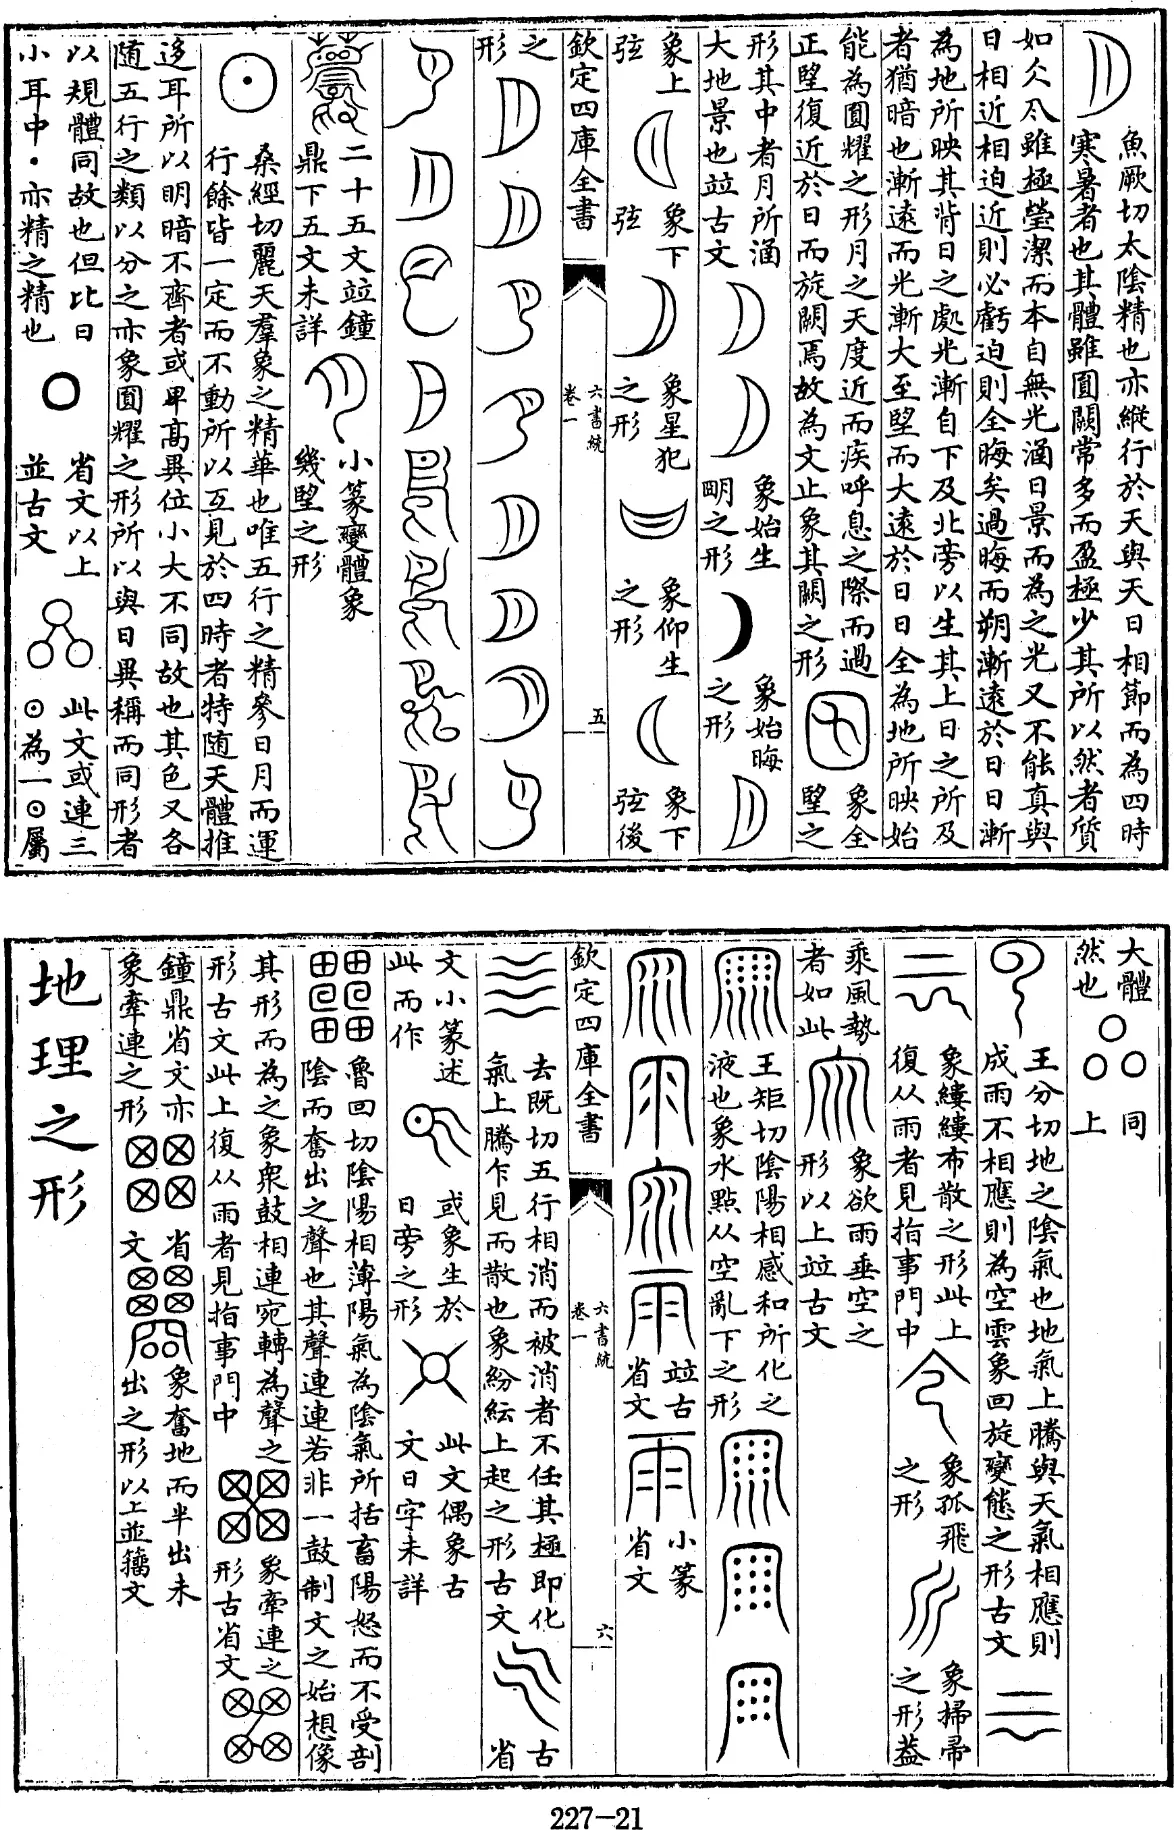 魚厥切太陰精也亦縱行於天與天日相節而為四時
寒暑者也其體雖圓闕常多而盈極少其所以然者質
如仌雖極瑩潔而本自無光涵日景而為之光又不能真與
日相近相迫近則必虧迫則全晦矣過晦而朔漸遠於日日漸
為地所映其背日之處光漸自下及北旁以生其上日之所及
者猶暗也漸遠而光漸大至朢而大遠於日日全為地所映始
能為圓耀之形月之天度近而疾呼息之際而過
正朢復近於日而旋闕焉故為文止象其闕之形
象全
朢之
形其中者月所涵
大地景也竝古文
象始生
朙之形
象始晦
之形
象上
弦
象下
弦
象星犯
之形
象仰生
之形
象下
弦後
欽定四庫全書
六書統
卷一
五
之
形
二十五文竝鐘
鼎下五文未詳
小篆變體象
幾朢之形
桑經切麗天羣象之精華也唯五行之精參日月而運
行餘皆一定而不動所以互見於四時者特隨天體推
迻耳所以明暗不齊者或卑高異位小大不同故也其色又各
隨五行之類以分之亦象圓耀之形所以與日異稱而同形者
以規體同故也但比日
小耳中·亦精之精也
省文以上
並古文
此文或連三
⊙為一⊙屬
大體
然也
同
上
王分切地之陰氣也地氣上騰與天氣相應則
成雨不相應則為空雲象回旋變態之形古文
象縷縷布散之形此上
復从雨者見指事門中
象孤飛
之形
象掃帚
之形葢
乘風勢
者如此
象欲雨垂空之
形以上竝古文
王矩切陰陽相感和所化之
液也象水點从空亂下之形
竝古
省文
小篆
省文
欽定四庫全書
六書統
卷一
六
去既切五行相消而被消者不任其極即化
氣上騰乍見而散也象紛紜上起之形古文
古
省
文小篆述
此而作
或象生於
日旁之形
此文偶象古
文日字未詳
魯回切陰陽相薄陽氣為陰氣所括畜陽怒而不受剖
陰而奮出之聲也其聲連連若非一鼓制文之始想像
其形而為之象衆鼓相連宛轉為聲之
形古文此上復从雨者見指事門中
象牽連之
形古省文
鐘鼎省文亦
象牽連之形
省
文
象奮地而半出未
出之形以上並籀文
地理之形
227-21